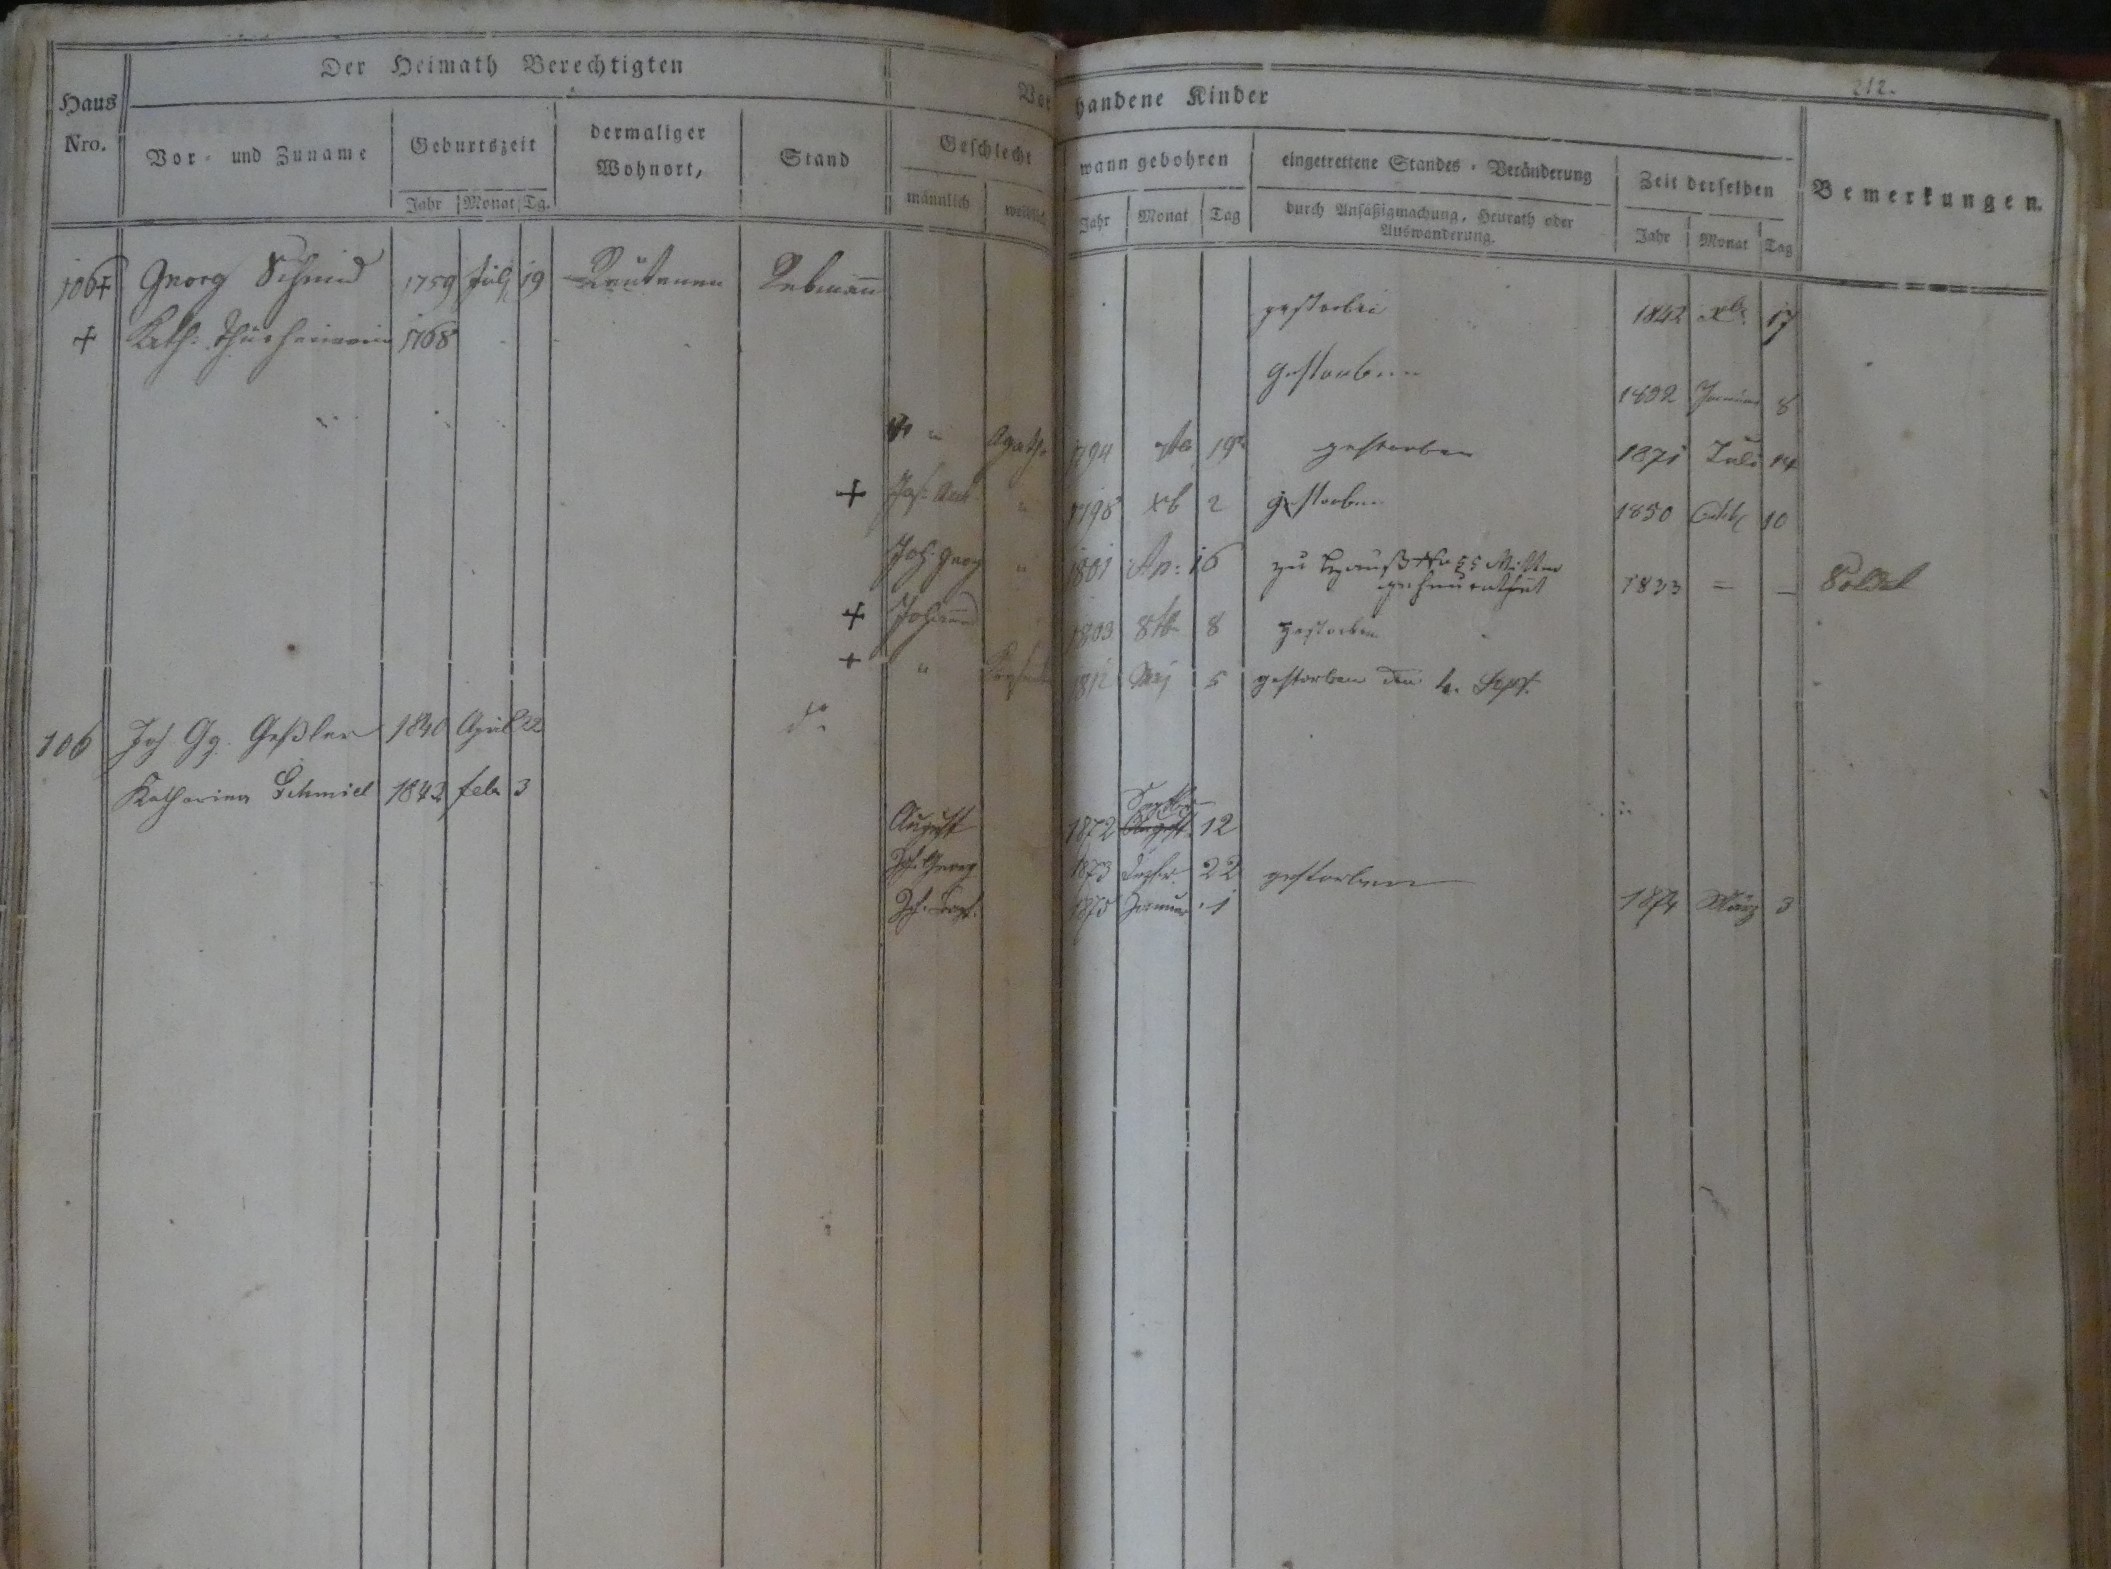 212.
Der Heimath Berechtigten
Vorhandene Kinder
Haus Nro.
Vor- und Zuname
Geburtszeit
Jahr Monat Tg.
dermaliger Wohnort,
Stand
Geschlecht
männlich weiblich
wann gebohren
Jahr Monat Tag
eingetrettene Standes-Veränderung
durch Ansäßigmachung, Heurath oder
Auswanderung.
Zeit derselben
Jahr Monat Tag
Bemerkungen.
106 + Georg Schmid 1759 July 19 Reutenen Rebmann gestorben 1842 Xbr. 17
+ Kath: 1768 gestorben 1832 Januar 8
" Agatha 1794 19 gestorben 1871 Juli 14
+ Jos: Ant. " 1798 xb 2 gestorben 1850 Octb 10
Joh: Georg " 1801 Ap: 16 zu Hauß Nro 55
geheurathet 1833 = – Soldat
+ Johann 1803 8tb 8 gestorben
+ " 1812 Mej 5 gestorben den 4. Sept.
106 Joh Gg. Geßler 1840 April 22 do
Katharina Schmid 1842 feb 3
August 1872 Septbr August 12
Joh. Georg 1873 Dezbr. 22 gestorben 1874 März 3
Joh. 1875 Januar 1